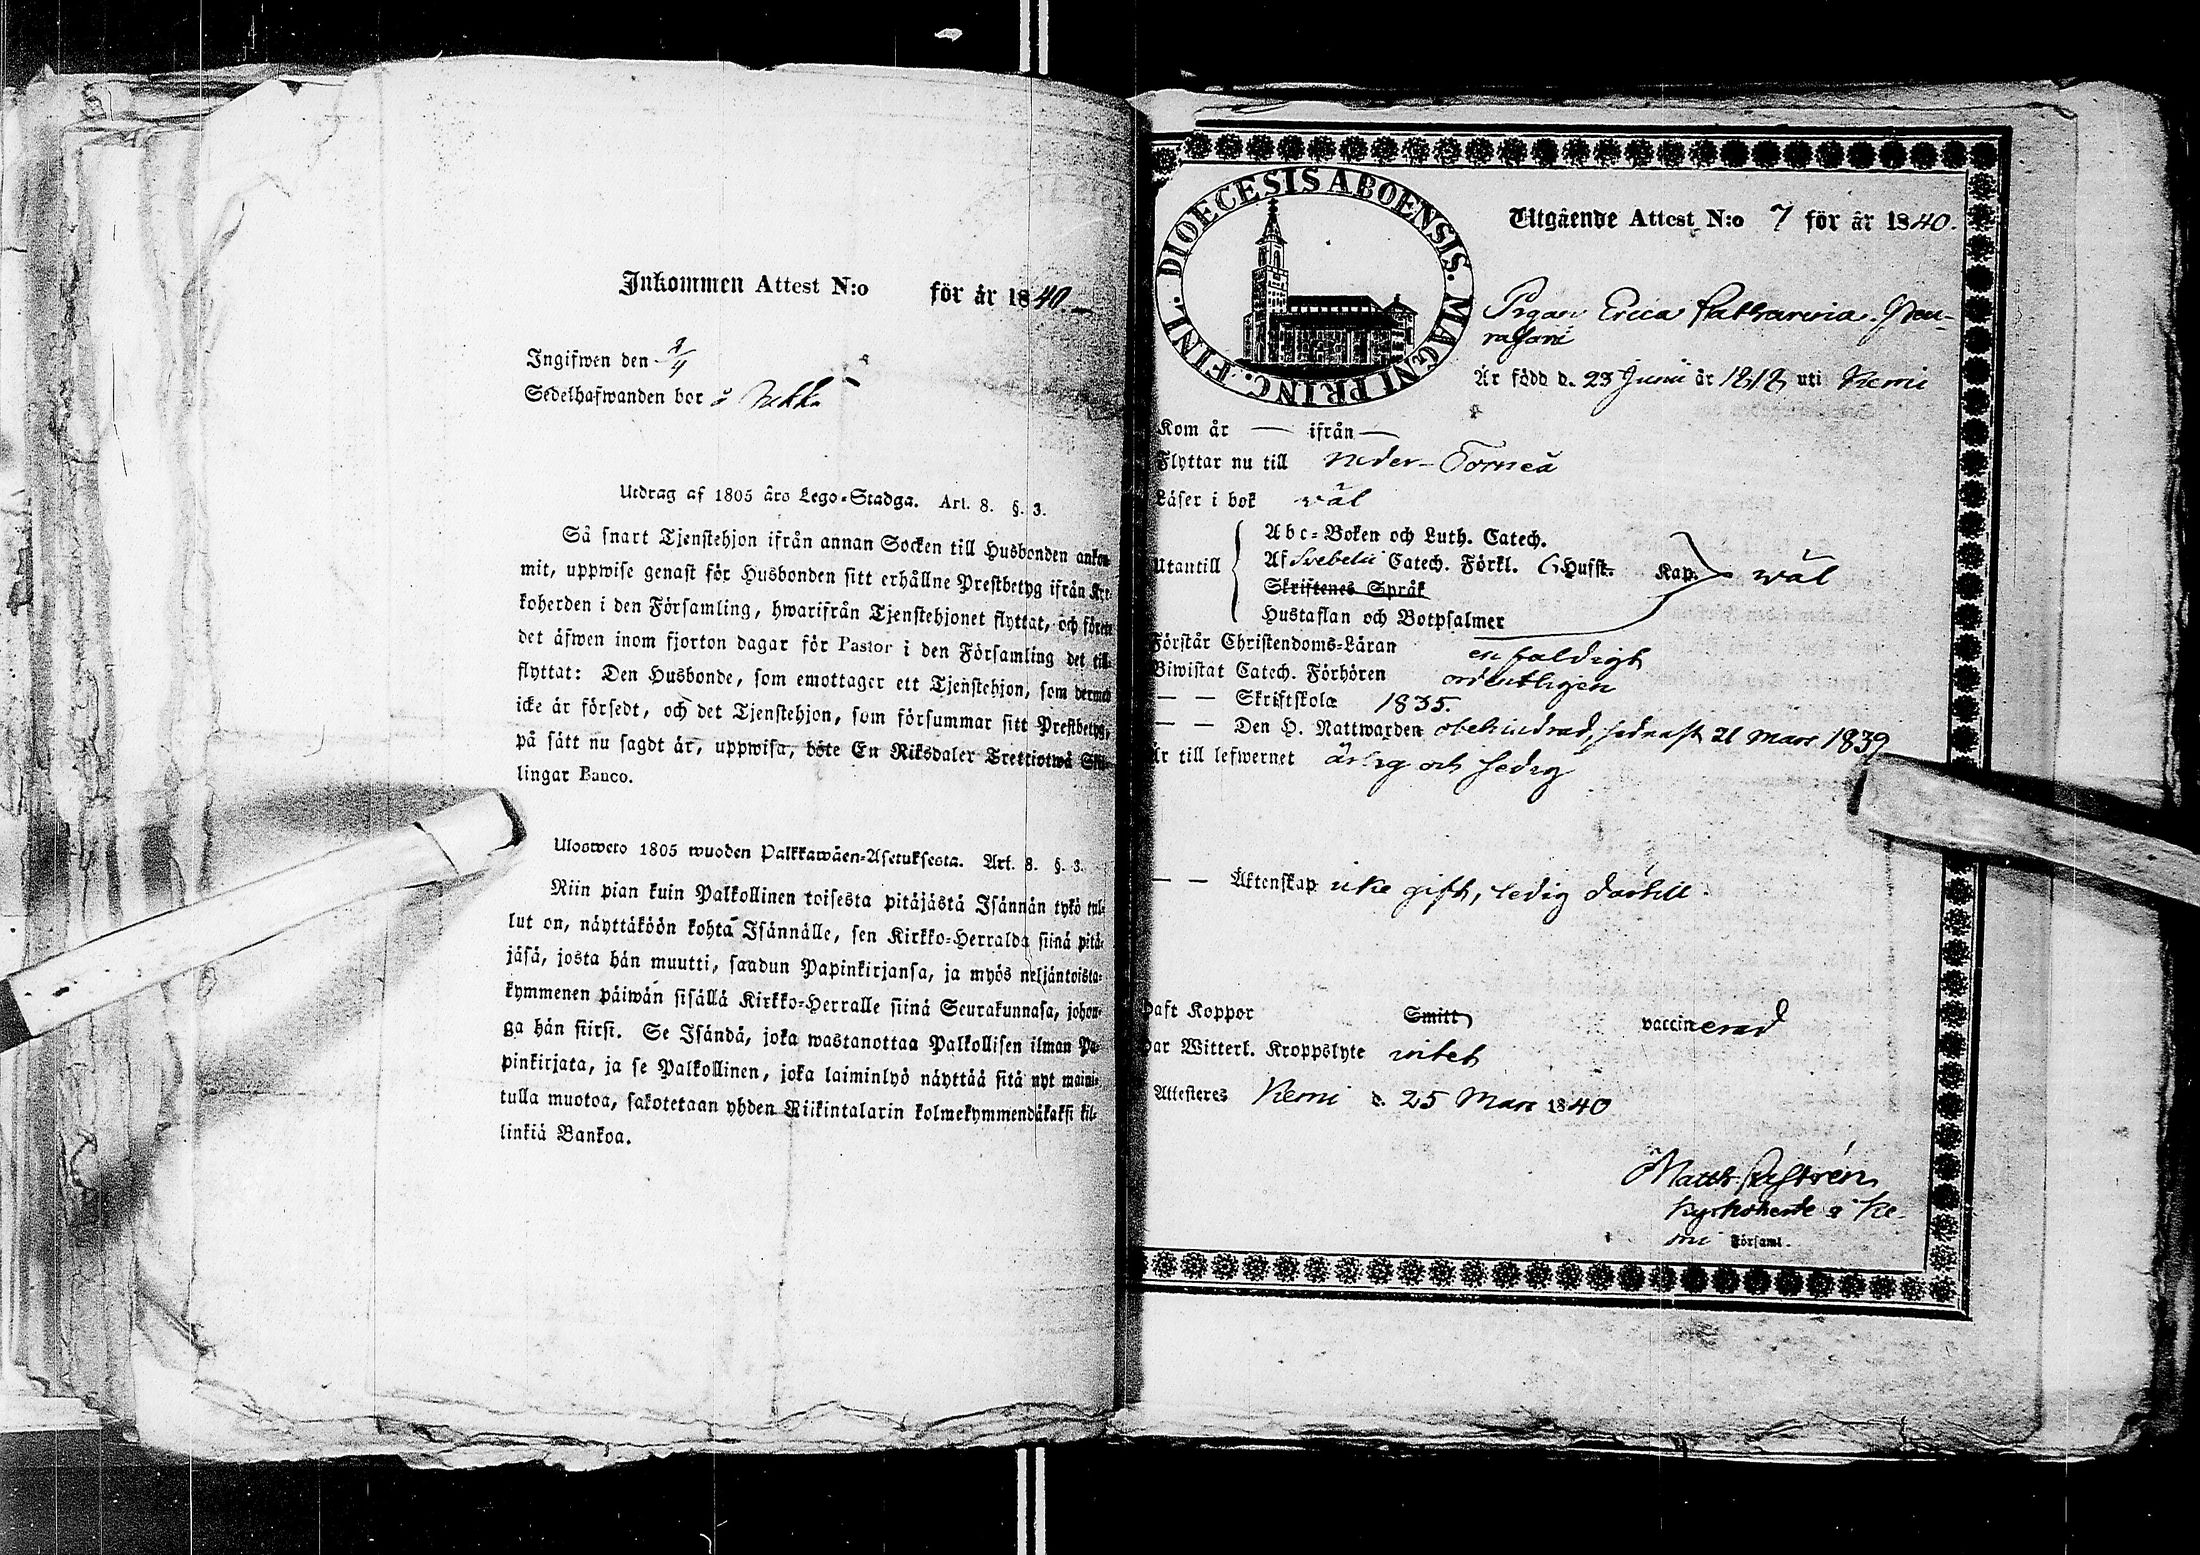 Inkommen Attest N:o för år 1840.
Ingifwen den
Sedelhafwanden bor å
Utdrag af 1805 års Lego-Stadga. Art. 8. §. 3.
Så snart Tjenstehjon ifrån annan Socken till Husbonden ankom-
mit, uppwise genast för Husbonden sitt erhållne Prestbetyg ifrån Kyr-
koherden i den Församling, hwarifrån Tjenstehjonet flyttat, och förete
det äfwen inom fjorton dagar för Pastor i den Församling det till-
flyttat: Den Husbonde, som emottager ett Tjenstehjon, som dermed
icke är försedt, och det Tjenstehjon, som försummar sitt Prestbetyg,
på sätt nu sagdt är, uppwisa, böte En Riksdaler Trettiotwå Skil-
lingar Banco.
Ulosweto 1805 wuoden Palkkawäen-Asetuksesta. Art. 8. §. 3.
Niin pian kuin Palkollinen toisesta pitäjästä Isännän tykö tul-
lut on, näyttäköön kohta Isännälle, sen Kirkko-Herralda siinä pitä-
jäsä, josta hän muutti, saadun Papinkirjansa, ja myös neljäntoista-
kymmenen päiwän sisällä Kirkko-Herralle siinä Seurakunnasa, johon-
ga hän siirsi. Se Isändä, joka wastanottaa Palkollisen ilman Pa-
pinkirjata, ja se Palkollinen, joka laiminlyö näyttää sitä nyt maini-
tulla muotoa, sakotetaan yhden Riikintalarin kolmekymmendäkaksi kil-
linkiä Bankoa.
DIOECESIS ABOENSIS. MAGNI PRINC. FINL.
Utgående Attest N:o 7 för år 1840.
Pigan Erica Catharina
Är född d. 23 Junii år 1818 uti Kemi
Kom år — ifrån —
Flyttar nu till Neder-Torneå
Läser i bok wäl
Utantill
Abc-Boken och Luth. Catech.
Af Svebelii Catech. Förkl. 6 Hufst. Kap. wäl
Skriftenes Språk
Hustaflan och Botpsalmer
Förstår Christendoms-Läran enfaldigt
Biwistat Catech. Förhören ordentligen
— — Skriftskola 1835.
— — Den H. Nattwarden obehindrad, sednast 21 Mars 1839
Är till lefwernet ärlig och sedig
— — Äktenskap icke gift, ledig dertill.
Haft Koppor Smitt vaccinerad
Har Witterl. Kroppslyte intet
Attesteres Kemi d. 25 Mars 1840
Matth. Castrén
Kyrkoherde i Ke-
mi Församl.